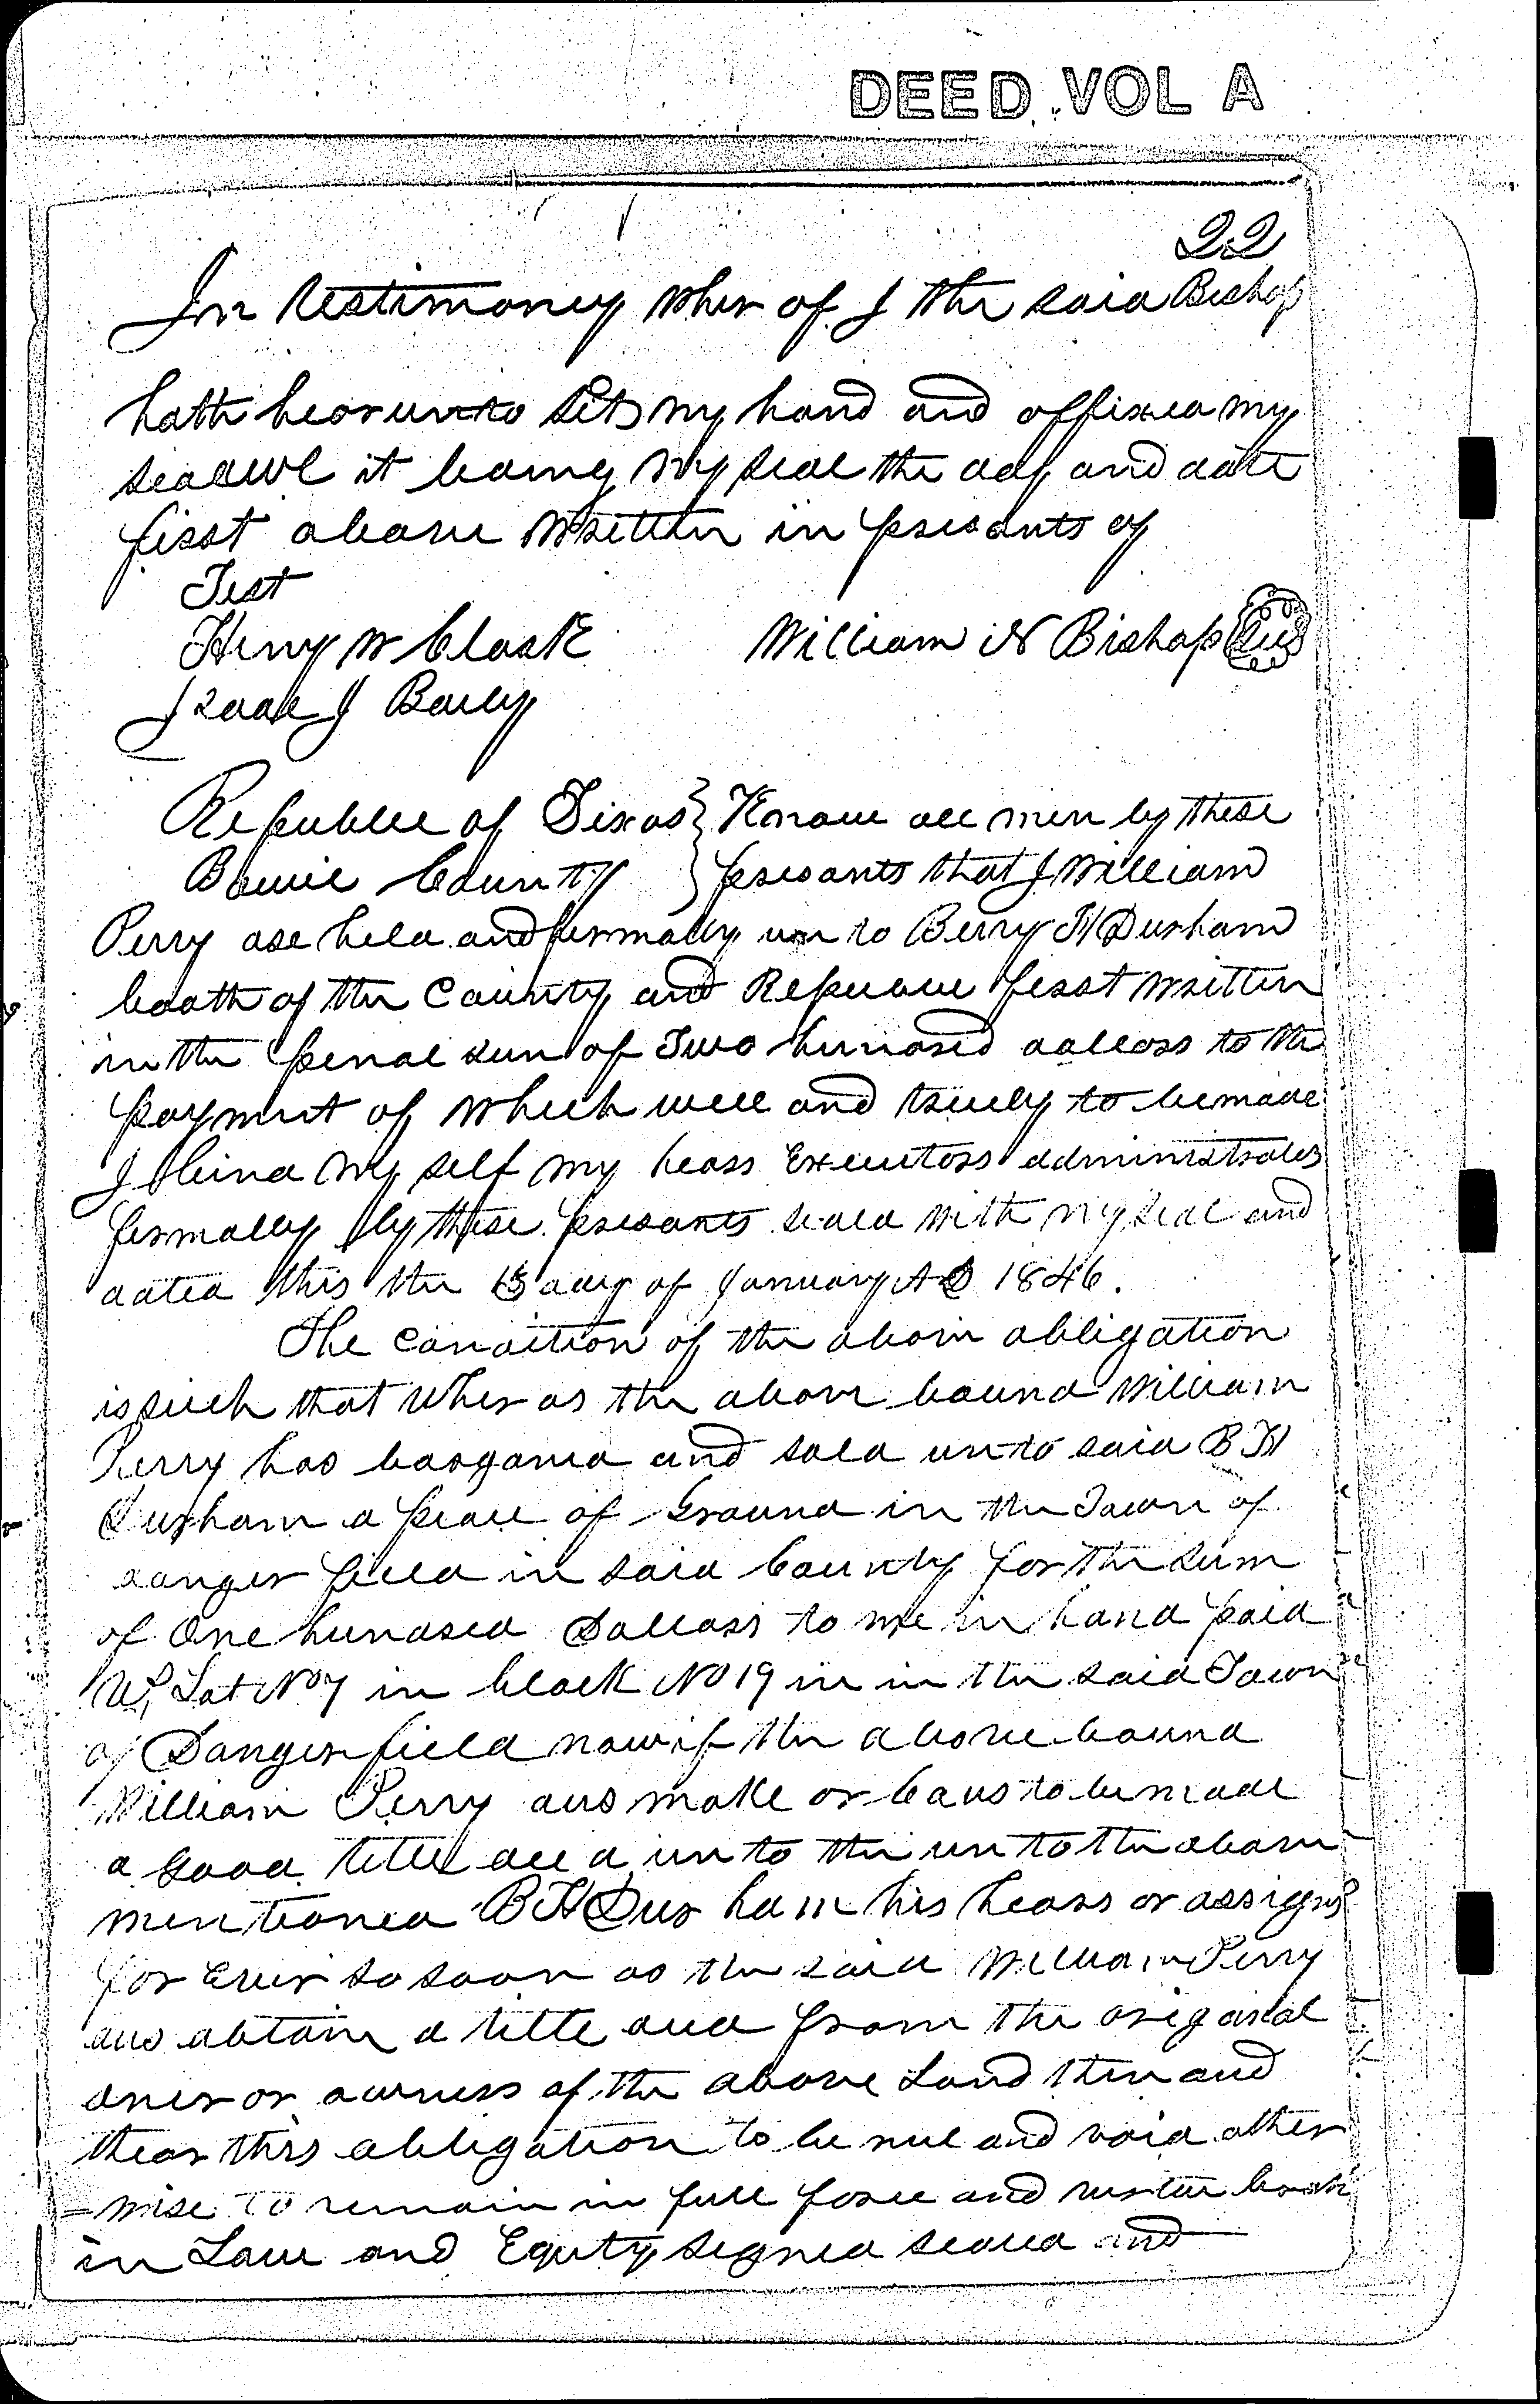 DEED VOL A
22
In testimoney wher of I the said Bishop
hath hearunto sets my hand and affixed my
seal it being my seal the day and date
first above written in presants of
Test
Henry W Clark William N Bishop Seal
Izaac J Baily
Republic of Texas } Know all men by these
Bowie County } presants that I William
Perry are held and firmally un to Berry H Durham
booth of the County and Republic first written
in the penal sum of Two hundred dollars to the
payment of which well and truely to be made
I bind my self my hears Executors administrators
firmally by these presants seald with my seal and
dated this the 15 day of January AD 1846.
The condition of the above obligation
is such that wher as the above bound William
Perry has bargand and sold unto said B H
Durham a peace of Ground in the Town of
danger field in said County for the sum
of One hundred Dollars to me in hand paid
Lot No 7 in block No 19 in in the said Town
of Dangerfield now if the above bound
William Perry dus make or caus to be made
a good title deed unto the un to the above
mentioned B H Dur ham his hears or assigns
for Ever so soon as the said William Perry
dus obtain a title deed from the origanal
oner or owners of the above Land then and
thear this obligation to be nul and void other
=wise to remain in full force and vertue booth
in Law and Equity signed sealed and